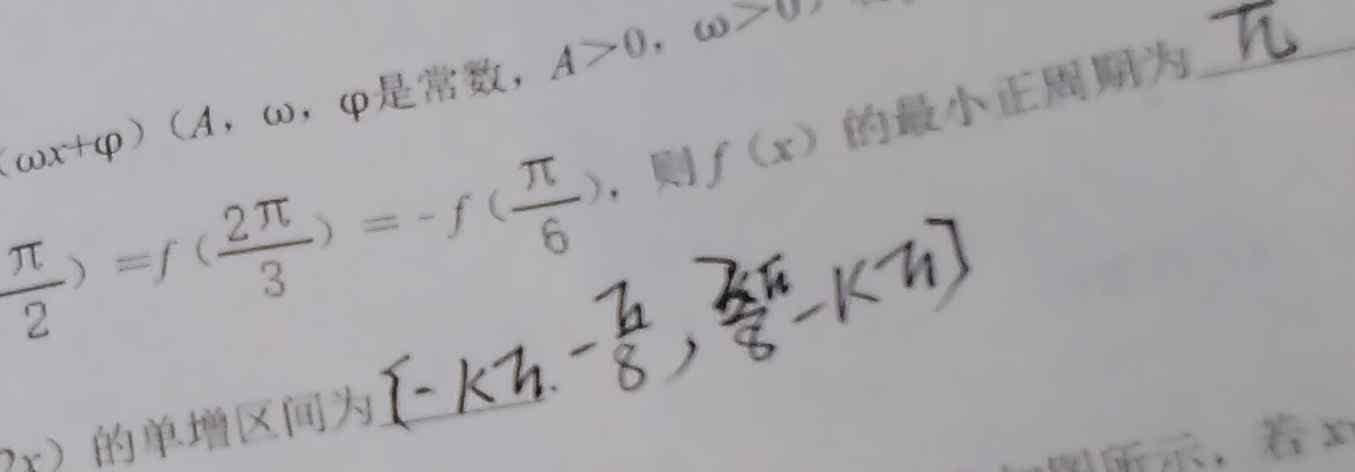 ωx+φ)(A，ω，φ是常数，A>0，ω>0，
π/2)=f(2π/3)=-f(π/6)，则f(x)的最小正周期为 π
2x)的单增区间为[-kπ-π/8, π/8-kπ]
如图所示，若x